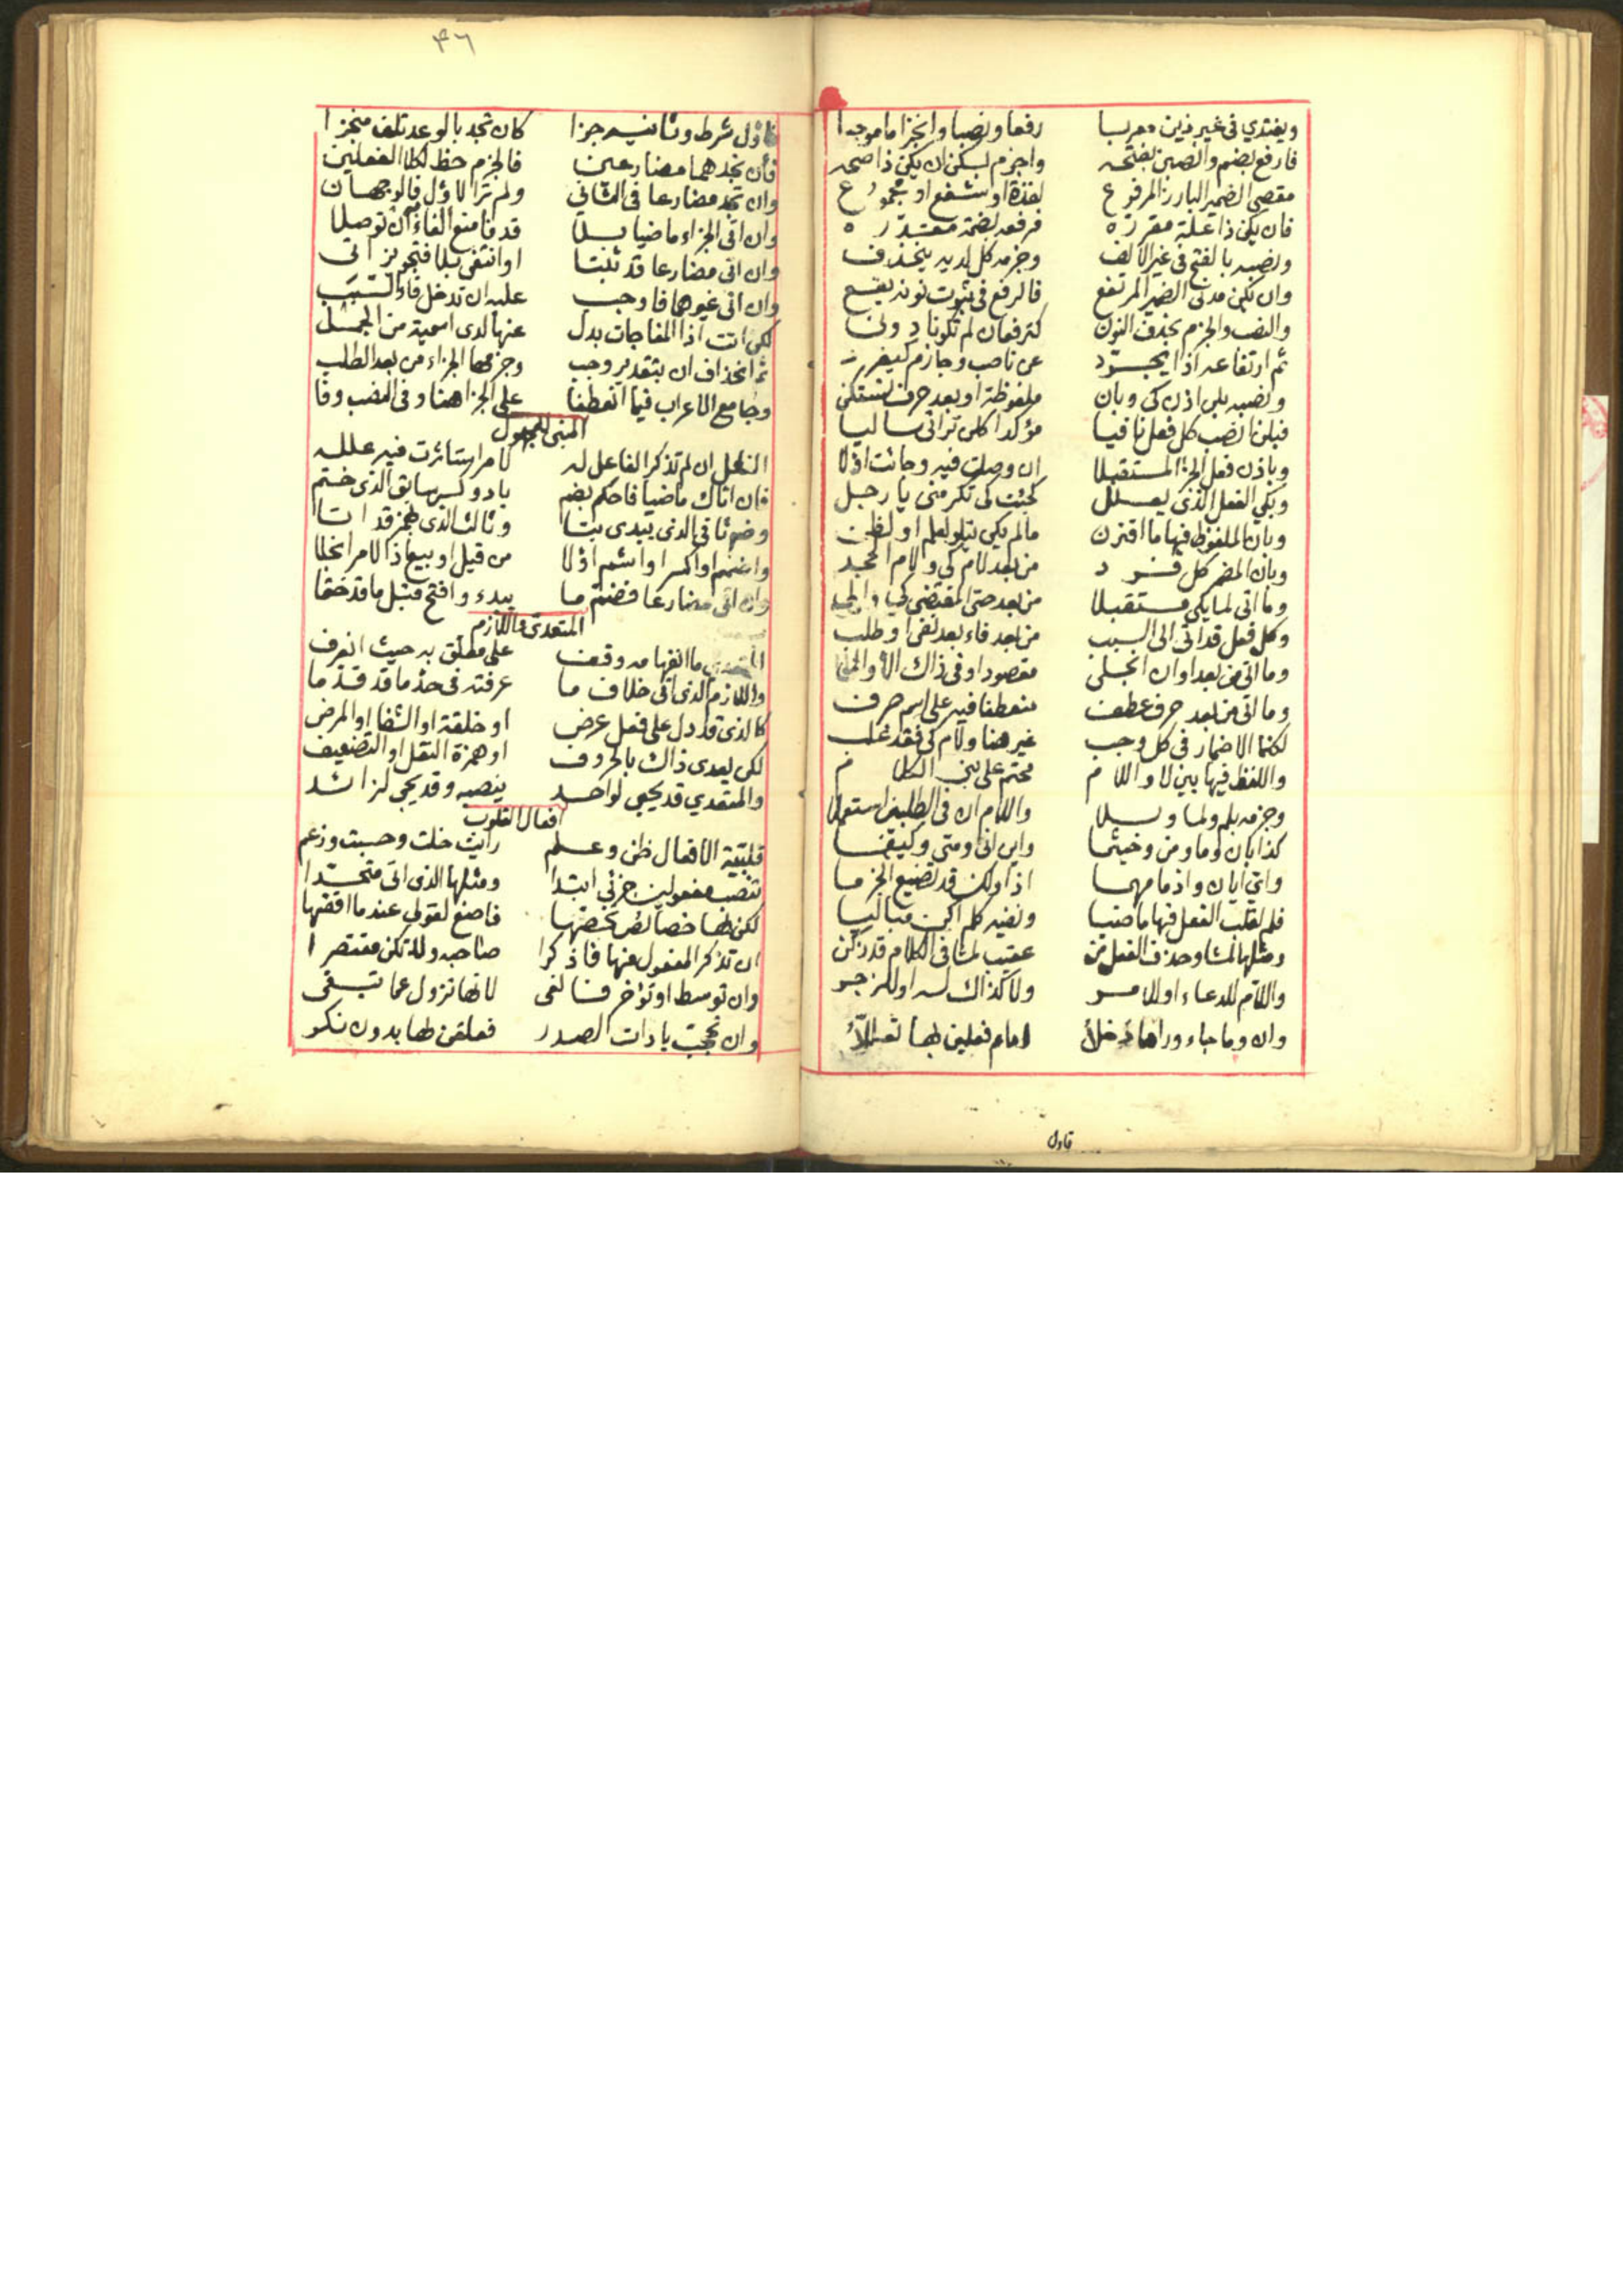 ويغتدي في غير ذين معربا رفعا ونصبا وانجزاما موجبا
فارفع بضم وانصبن بفتحه واجزم بسكن ان يكن ذا صحه
مقصي الضمير البارز المرفوع لفذة او شفع او مجموع
فان يكن ذا علة مقرره فرفعه بضمة مقدره
ونصبه بالفتح في غير الالف وجزمه كل لديه ينحذف
وان يكن مدني الضمير المرتفع فالرفع في ثبوت نونه يقع
والنصب والجزم بحذف النون كترفعان لم تكونا دوني
ثم ارتفاعه اذا يجرد عن ناصب وجازم كيفرد
ونصبه بلن اذن كي وبان ملفوظة او بعد حرف تستكن
فبلن انصب كل فعل نافيا مؤكدا كلن تراني ساليا
وباذن فعل الجزا المستقبلا ان وصلت فيه وجائت اولا
وبكي الفعل الذي يعلل كجئت كي تكرمني يا رجل
وبان الملفوظ فيها ما اقترن مالم يكن تتلو لعلم او لظن
وبان المضمر كل فرد من بعد لام كي ولام الجحد
وما اتى لما يكن مستقبلا من بعد حتى المقتضي كي والى
وكل فعل قد اتى الى السبب من بعد فاء بعد نفي او طلب
وما اتى من بعد او ان انجلى مقصود او في ذاك الا والى
وما اتى من بعد حرف عطف منعطفا فيه على اسم صرف
لكنما الاضمار في كل وجب غير هنا ولام كي فقد غلب
واللفظ فيها بين لا واللام محتم على بني الكلام
وجزمه بلم ولما وبلا واللام ان في الطلب استعملا
كذا بان وما ومن وحيثما واين انى ومتى وكيفما
واي ايان واذما مهما اذا ولكن قد تضيع الجزما
فلم لقلب الفعل فيها ماضيا ونفيه كلم اكن مباليا
ومثلها لما وحذف الفعل عن عقيب لما في الكلام قد زكن
واللام للدعاء او للامر ولا كذاك له او للزجر
وان وما جاء وراها دخلا امام فعلين لها تعملا
فاول
٣٦
فاول شرط وثانيه جزا كان تجد بالوعد تلف منجزا
فان تجدهما مضارعين فالجزم حظ لكلا الفعلين
وان تجد مضارعا في الثاني ولم تر الاول فالوجهان
وان اتى الجزاء ماضيا بلا قد فامنع الفاء ان توصلا
وان اتى مضارعا قد ثبتا او انتفى بلا فتجويز اتى
وان اتى غيرهما فاوجب عليه ان تدخل فاء السبب
لكن اتت اذا المفاجات بدل عنها لدى اسمية من الجمل
ثم انحذاف ان بتقدير وجب وجزمها الجزاء من بعد الطلب
وجامع الاعراب فيما انعطفا على الجزا هنا وفي النصب وفا
المبني للمجهول
الفعل ان لم تذكر الفاعل له لامر استاثرت فيه علله
فان اتاك ماضيا فاحكم بضم باد وكسر سابق الذي ختم
وضم ثاني الذي يبدى بتا وثالث الذي بهمز قد اتا
واضمم او اكسر او اشمم اولا من قيل او بيع اذ الامر انجلا
وان اتى مضارعا فضم ما يبدء وافتح قبل ما قد ختما
المتعدي واللازم
المتعدي ما انفهامه وقف على معلق به حيث انعرف
واللازم الذي اتى خلاف ما عرفته في حد ما قد قدما
كالذي قد دل على فعل عرض او خلقة او الشفا او المرض
لكن يعدى ذاك بالحروف او همزة النقل او التضعيف
والمتعدي قد يجي لواحد ينصبه وقد يجي لزائد
افعال القلوب
قلبية الافعال ظن وعلم رايت خلت وحسبت وزعم
تنصب مفعولين جزئي ابتدا ومثلها الذي اتى متحدا
لكن لها خصائص تخصها فاصنع لقولي عندما اقصها
ان تذكر المفعول منها فاذكرا صاحبه ولا تكن مقتصرا
وان توسط او تؤخر فنالغى لانها تزول عما تبتغى
وان تجئ بادات الصدر فعلقن لها بدون نكر